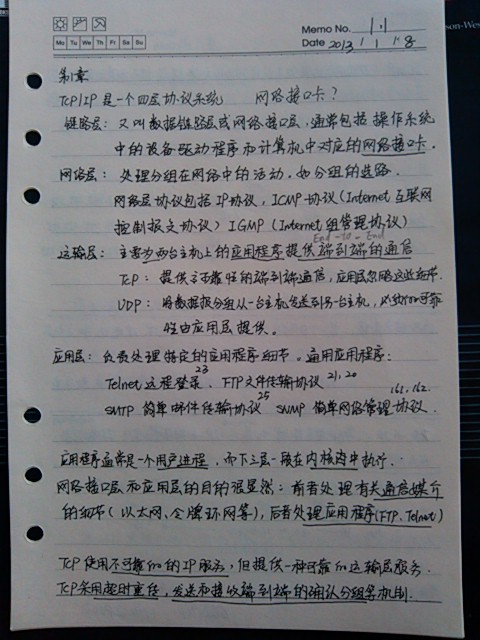 Memo No. 1.1
Mo Tu We Th Fr Sa Su
Date 2013 / 1 / 8
son-Wes
第1章
TCP/IP是一个四层协议系统 网络接口卡？
链路层：又叫数据链路层或网络接口层，通常包括操作系统
中的设备驱动程序和计算机中对应的网络接口卡．
网络层：处理分组在网络中的活动，如分组的选路．
网络层协议包括IP协议，ICMP协议（Internet互联网
控制报文协议）IGMP（Internet组管理协议）
End-to-End
运输层：主要为两台主机上的应用程序提供端到端的通信
TCP：提供高可靠性的端到端通信，应用层忽略这些细节．
UDP：将数据报分组从一台主机发送到另一台主机，必须的可靠
性由应用层提供。
应用层：负责处理特定的应用程序细节。通用应用程序：
Telnet远程登录 23、FTP文件传输协议 21, 20
SMTP简单邮件传输协议 25 SNMP简单网络管理协议 161, 162．
应用程序通常是一个用户进程，而下三层一般在内核中执行．
网络接口层和应用层的目的很显然：前者处理有关通信媒介
的细节（以太网、令牌环网等），后者处理应用程序（FTP、Telnet）
TCP使用不可靠的IP服务，但提供一种可靠的运输层服务．
TCP采用超时重传，发送和接收端到端的确认分组等机制．